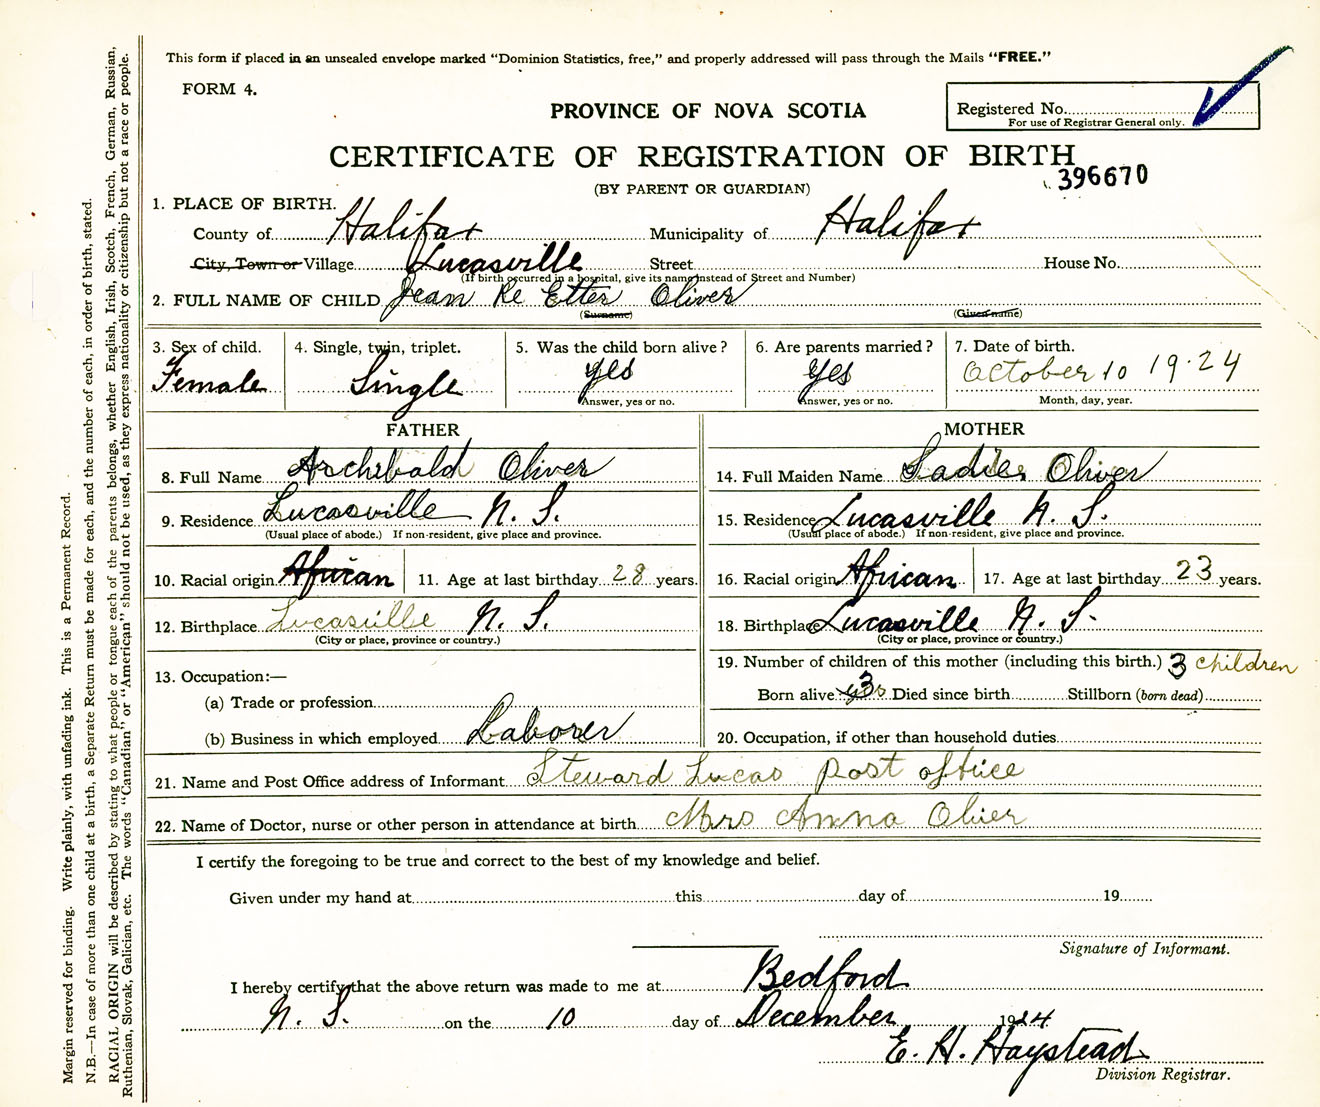 This form if placed in an unsealed envelope marked "Dominion Statistics, free," and properly addressed will pass through the Mails "FREE."
FORM 4.
PROVINCE OF NOVA SCOTIA
Registered No.
For use of Registrar General only.
CERTIFICATE OF REGISTRATION OF BIRTH
396670
(BY PARENT OR GUARDIAN)
1. PLACE OF BIRTH.
County of Halifax Municipality of Halifax
City, Town or Village Lucasville Street House No.
(If birth occurred in a hospital, give its name instead of Street and Number)
2. FULL NAME OF CHILD Jean Re Etter Oliver
(Surname) (Given name)
3. Sex of child. 4. Single, twin, triplet. 5. Was the child born alive? 6. Are parents married? 7. Date of birth.
Female Single yes Yes October 10 19·24
Answer, yes or no. Answer, yes or no. Month, day, year.
FATHER
8. Full Name Archibald Oliver
9. Residence Lucasville N. S.
(Usual place of abode.) If non-resident, give place and province.
10. Racial origin African 11. Age at last birthday 28 years.
12. Birthplace Lucasville N. S.
(City or place, province or country.)
13. Occupation:—
(a) Trade or profession
(b) Business in which employed Laborer
MOTHER
14. Full Maiden Name Sadie Oliver
15. Residence Lucasville N. S.
(Usual place of abode.) If non-resident, give place and province.
16. Racial origin African 17. Age at last birthday 23 years.
18. Birthplace Lucasville N. S.
(City or place, province or country.)
19. Number of children of this mother (including this birth.) 3 children
Born alive 3 Died since birth Stillborn (born dead)
20. Occupation, if other than household duties
21. Name and Post Office address of Informant Steward Lucas post office
22. Name of Doctor, nurse or other person in attendance at birth Mrs Anna Olier
I certify the foregoing to be true and correct to the best of my knowledge and belief.
Given under my hand at this day of 19
Signature of Informant.
I hereby certify that the above return was made to me at Bedford
N. S. on the 10 day of December 1924
E. H. Haystead
Division Registrar.
Margin reserved for binding. Write plainly, with unfading ink. This is a Permanent Record.
N.B.—In case of more than one child at a birth, a Separate Return must be made for each, and the number of each, in order of birth, stated.
RACIAL ORIGIN will be described by stating to what people or tongue each of the parents belongs, whether English, Irish, Scotch, French, German, Russian,
Ruthenian, Slovak, Galician, etc. The words "Canadian" or "American" should not be used, as they express nationality or citizenship but not a race or people.